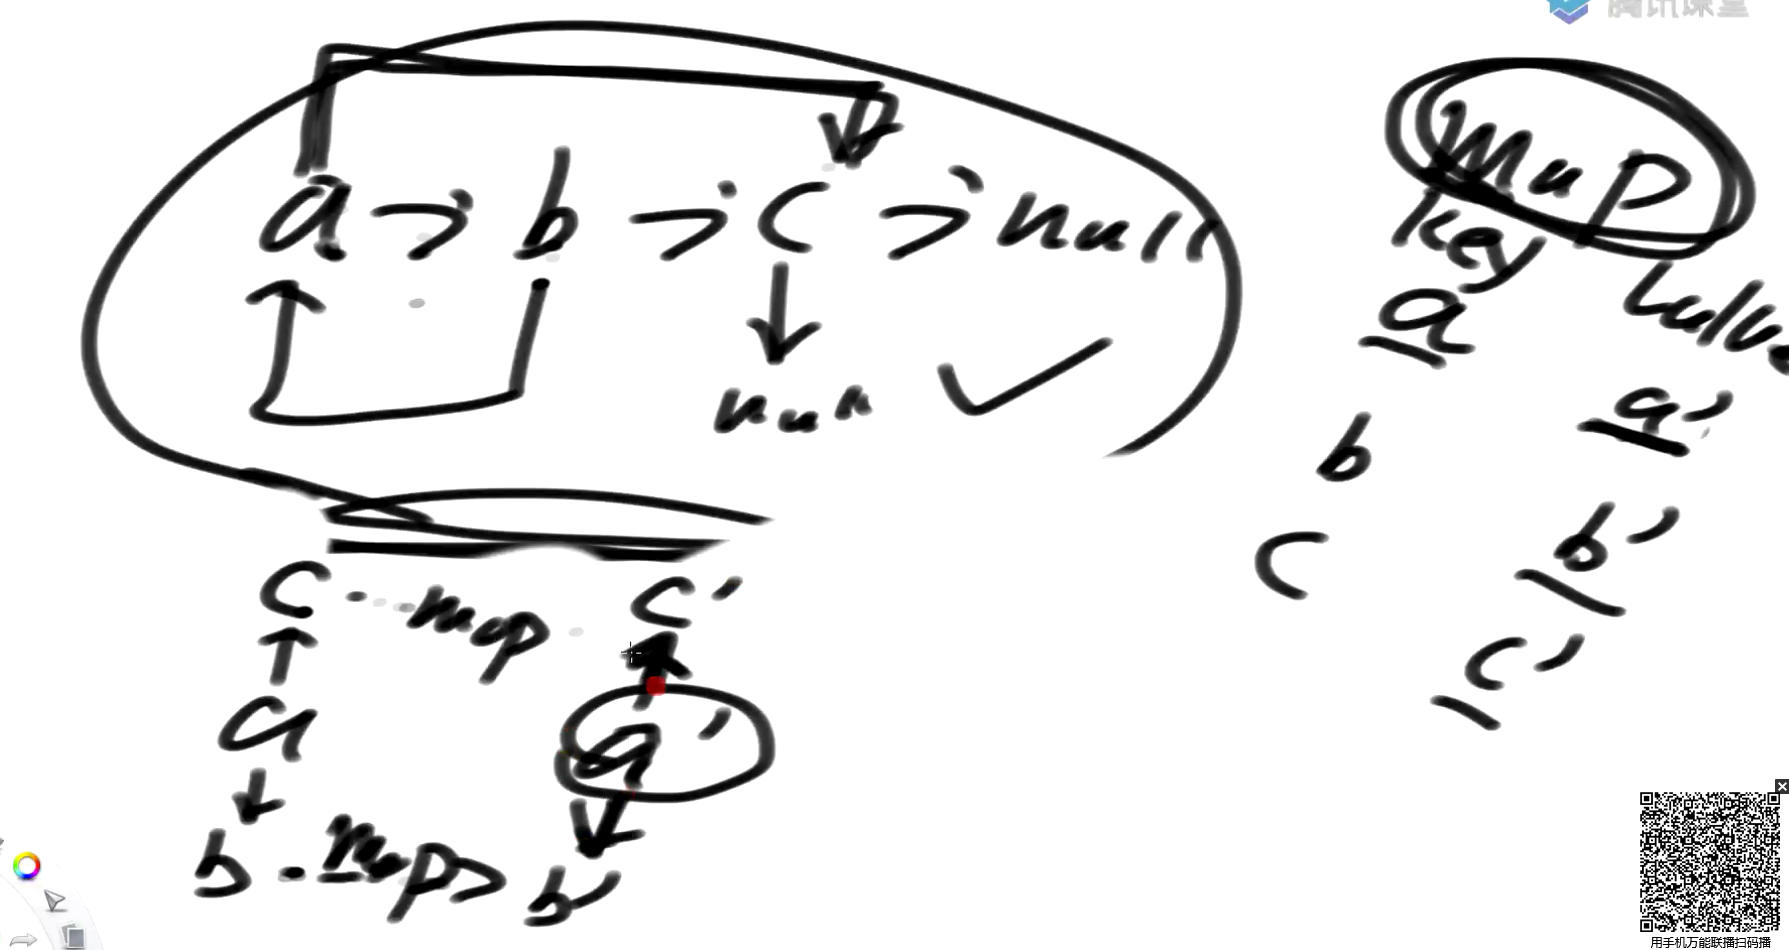 腾讯课堂
a -> b -> c -> null
null
Map
key value
a a'
b b'
c c'
c map c'
a a'
b map> b'
用手机万能联播扫码播